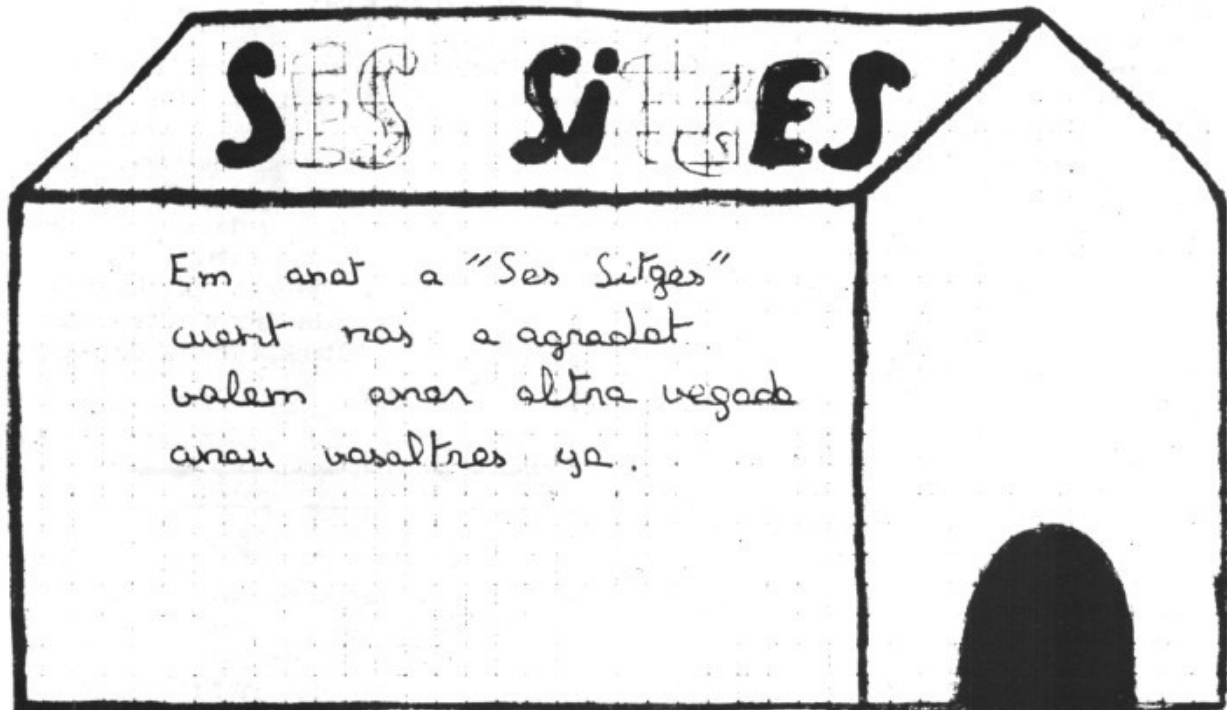 SES SitgES
Em anat a "Ses Sitges"
cuant nos a agradat
volem anar altra vegada
anau vosaltres ya.